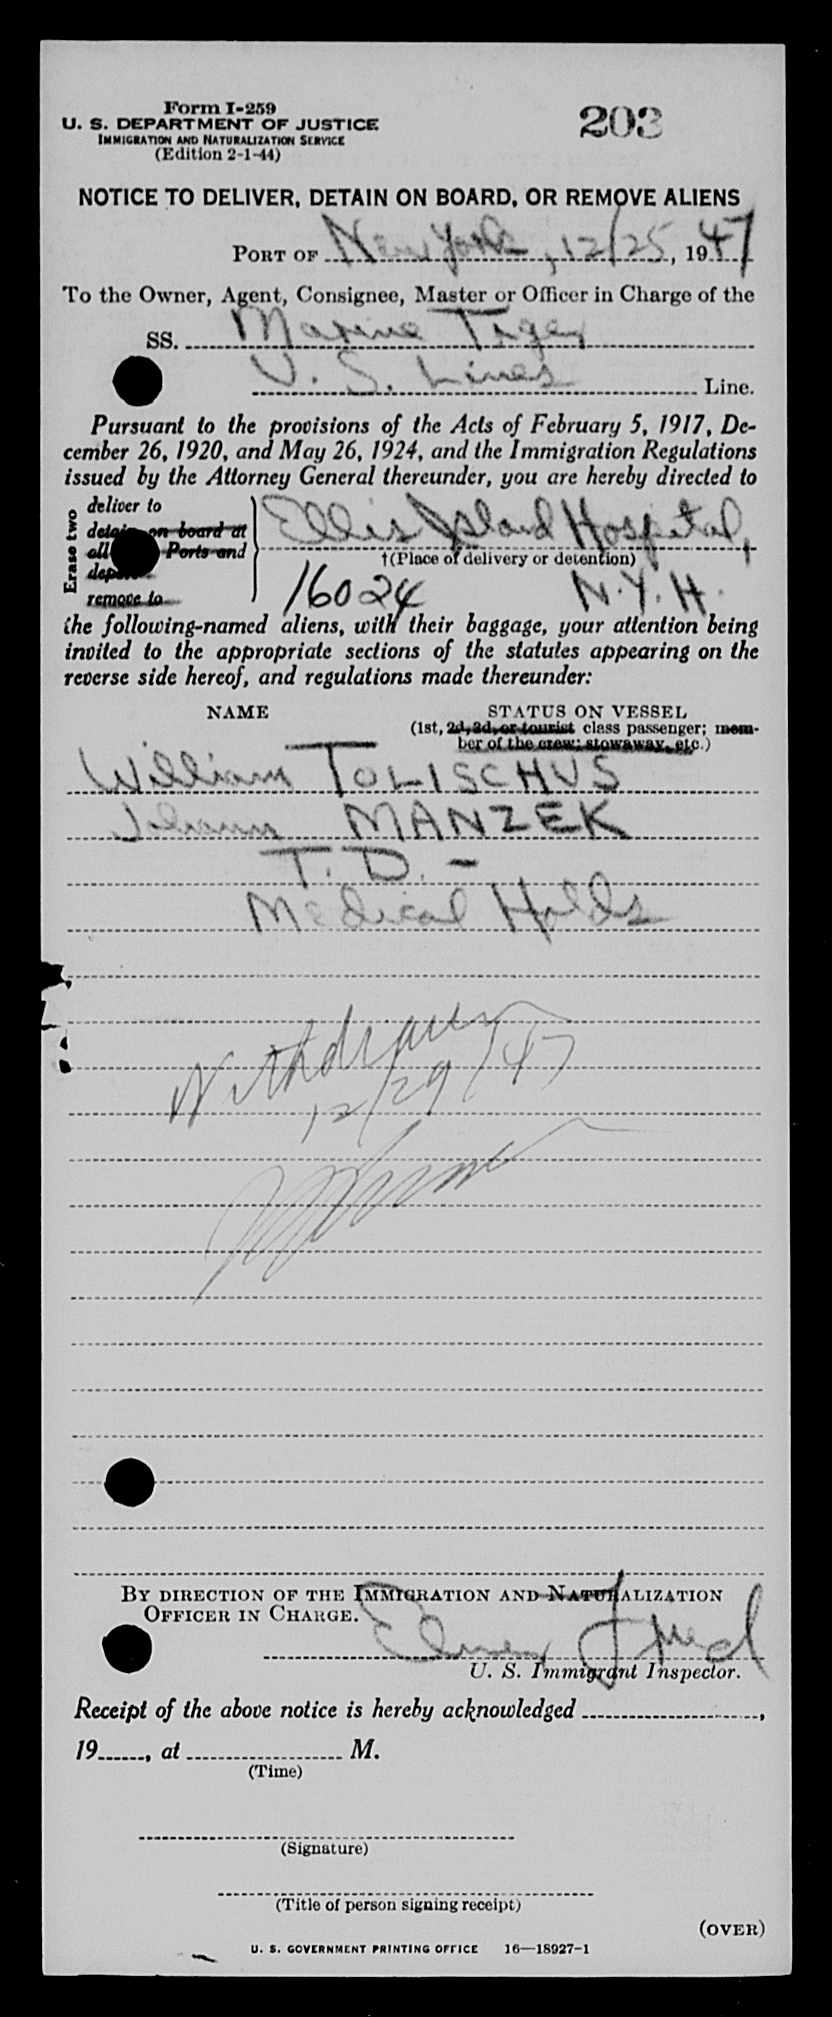 Form I-259
203
U. S. DEPARTMENT OF JUSTICE
IMMIGRATION AND NATURALIZATION SERVICE
(Edition 2-1-44)
NOTICE TO DELIVER, DETAIN ON BOARD, OR REMOVE ALIENS
PORT OF New York, 12/25, 1947
To the Owner, Agent, Consignee, Master or Officer in Charge of the
SS. Marine Tiger
U. S. Lines Line.
Pursuant to the provisions of the Acts of February 5, 1917, De-
cember 26, 1920, and May 26, 1924, and the Immigration Regulations
issued by the Attorney General thereunder, you are hereby directed to
Erase two
deliver to
detain on board at
all Ports and
remove to
Ellis Island Hospital,
†(Place of delivery or detention)
16024 N.Y.H.
the following-named aliens, with their baggage, your attention being
invited to the appropriate sections of the statutes appearing on the
reverse side hereof, and regulations made thereunder:
NAME STATUS ON VESSEL
(1st, 2d, 3d, or tourist class passenger; mem-
ber of the crew; stowaway, etc.)
William TOLISCHUS
Johann MANZEK
T. D. -
Medical Holds
Withdrawn
12/29/47
BY DIRECTION OF THE IMMIGRATION AND NATURALIZATION
OFFICER IN CHARGE.
U. S. Immigrant Inspector.
Receipt of the above notice is hereby acknowledged ,
19 , at M.
(Time)
(Signature)
(Title of person signing receipt)
(OVER)
U. S. GOVERNMENT PRINTING OFFICE 16—18927-1